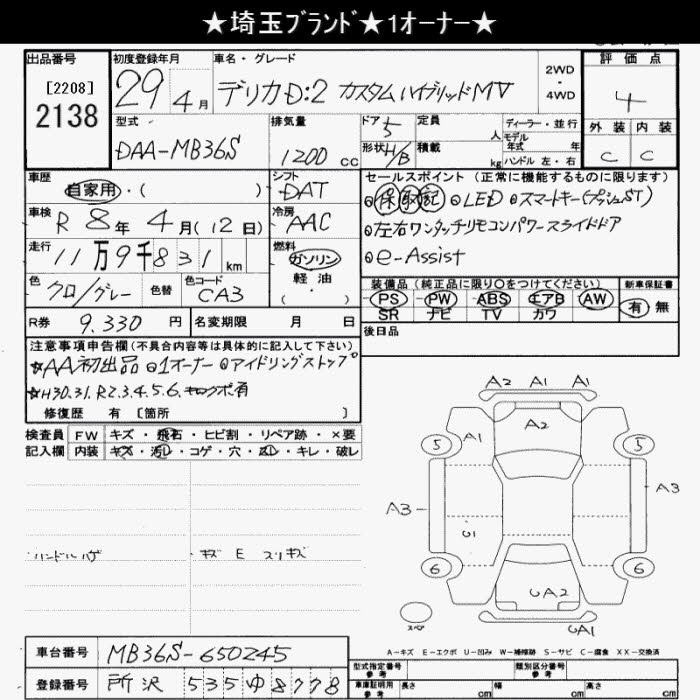 ★埼玉ﾌﾞﾗﾝﾄﾞ★1オーナー★
出品番号
[2208]
2138
初度登録年月
29年4月
車名・グレード
デリカD:2 カスタムハイブリッドMV
2WD
・
4WD
評価点
4
外装 内装
C C
型式
DAA-MB36S
排気量
1200cc
ドア 5
形状 H/B
定員 人
積載 kg
ディーラー・並行
モデル年式 年式
ハンドル 左・右
車歴
自家用・( )
シフト
DAT
セールスポイント (正常に機能するものに限ります)
保 取 記 ⊙LED ⊙スマートキー(プッシュST)
⊙左右ワンタッチリモコンパワースライドドア
⊙e-Assist
車検
R8年4月(12日)
冷房
AAC
走行
11万9千831km
燃料
ガソリン
軽油
( ・ )
色
クロ/グレー
色替
色コード
CA3
装備品 (純正品に限り○をつけてください)
PS PW ABS エアB AW
SR ナビ TV カワ
新車保証書
有 無
後日品
R券 9.330円
名変期限 月 日
注意事項申告欄(不具合内容等は具体的に記入して下さい)
★AA初出品 ⊙1オーナー ⊙アイドリングストップ
★H30.31.R2.3.4.5.6.キロクボ有
修復歴 有 [箇所 ]
検査員記入欄
FW キズ・飛石・ヒビ割・リペア跡・×要
内装 キズ・汚レ・コゲ・穴・凹レ・キレ・破レ
ハンドルハゲ
キズ E スリキズ
A2 A1 A1
A2
5 A1 5
A3 A3
U1
6 6
UA2
スペア
UA1
A-キズ E-エクボ U-凹み W-補修跡 S-サビ C-腐食 XX-交換済
車台番号 MB36S-650245
登録番号 所沢 535ゆ8778
型式指定番号 参考
類別区分番号 参考
車庫証明用 参考 長さ cm 幅 cm 高さ cm